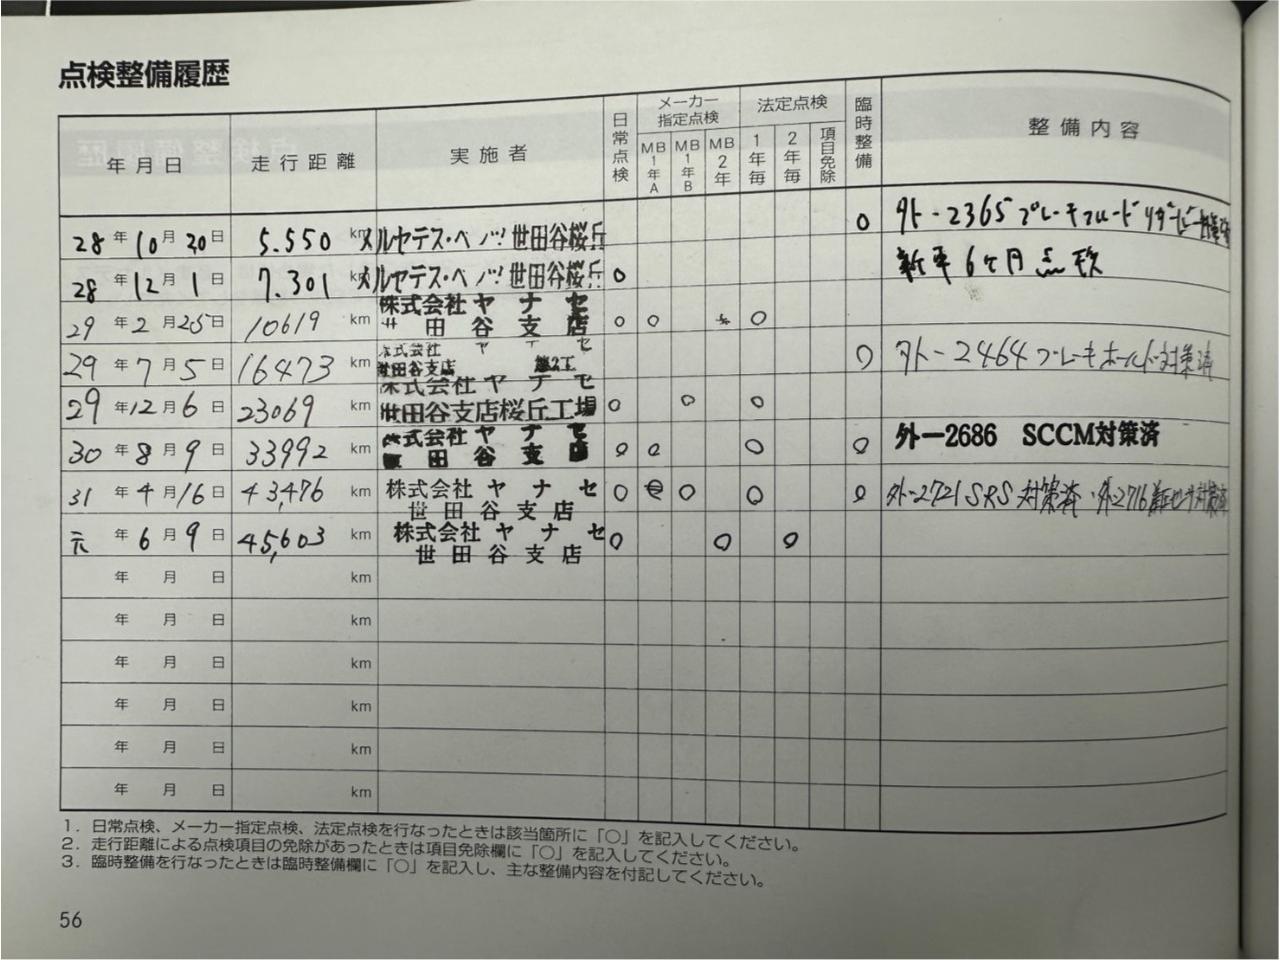 点検整備履歴
年月日 走行距離 実施者 日常点検 メーカー指定点検 MB1年A MB1年B MB2年 法定点検 1年毎 2年毎 項目免除 臨時整備 整備内容
28年10月30日 5.550km メルセデス・ベンツ世田谷桜丘 ○ 外-2365 ブレーキフルード リザーバー
28年12月1日 7.301km メルセデス・ベンツ世田谷桜丘 ○ 新車6ヶ月点検
29年2月25日 10619km 株式会社ヤナセ
世田谷支店 ○ ○ ○
29年7月5日 16473km 株式会社ヤナセ
世田谷支店 ○ 外-2464 ブレーキホールド対策済
29年12月6日 23069km 株式会社ヤナセ
世田谷支店桜丘工場 ○ ○ ○
30年8月9日 33992km 株式会社ヤナセ
世田谷支店 ○ ○ ○ ○ 外-2686 SCCM対策済
31年4月16日 43,476km 株式会社ヤナセ
世田谷支店 ○ ○ ○ ○ 外-2721 SRS対策済・外-2716
元年6月9日 45,603km 株式会社ヤナセ
世田谷支店 ○ ○ ○
年 月 日 km
年 月 日 km
年 月 日 km
年 月 日 km
年 月 日 km
年 月 日 km
1. 日常点検、メーカー指定点検、法定点検を行なったときは該当箇所に「○」を記入してください。
2. 走行距離による点検項目の免除があったときは項目免除欄に「○」を記入してください。
3. 臨時整備を行なったときは臨時整備欄に「○」を記入し、主な整備内容を付記してください。
56